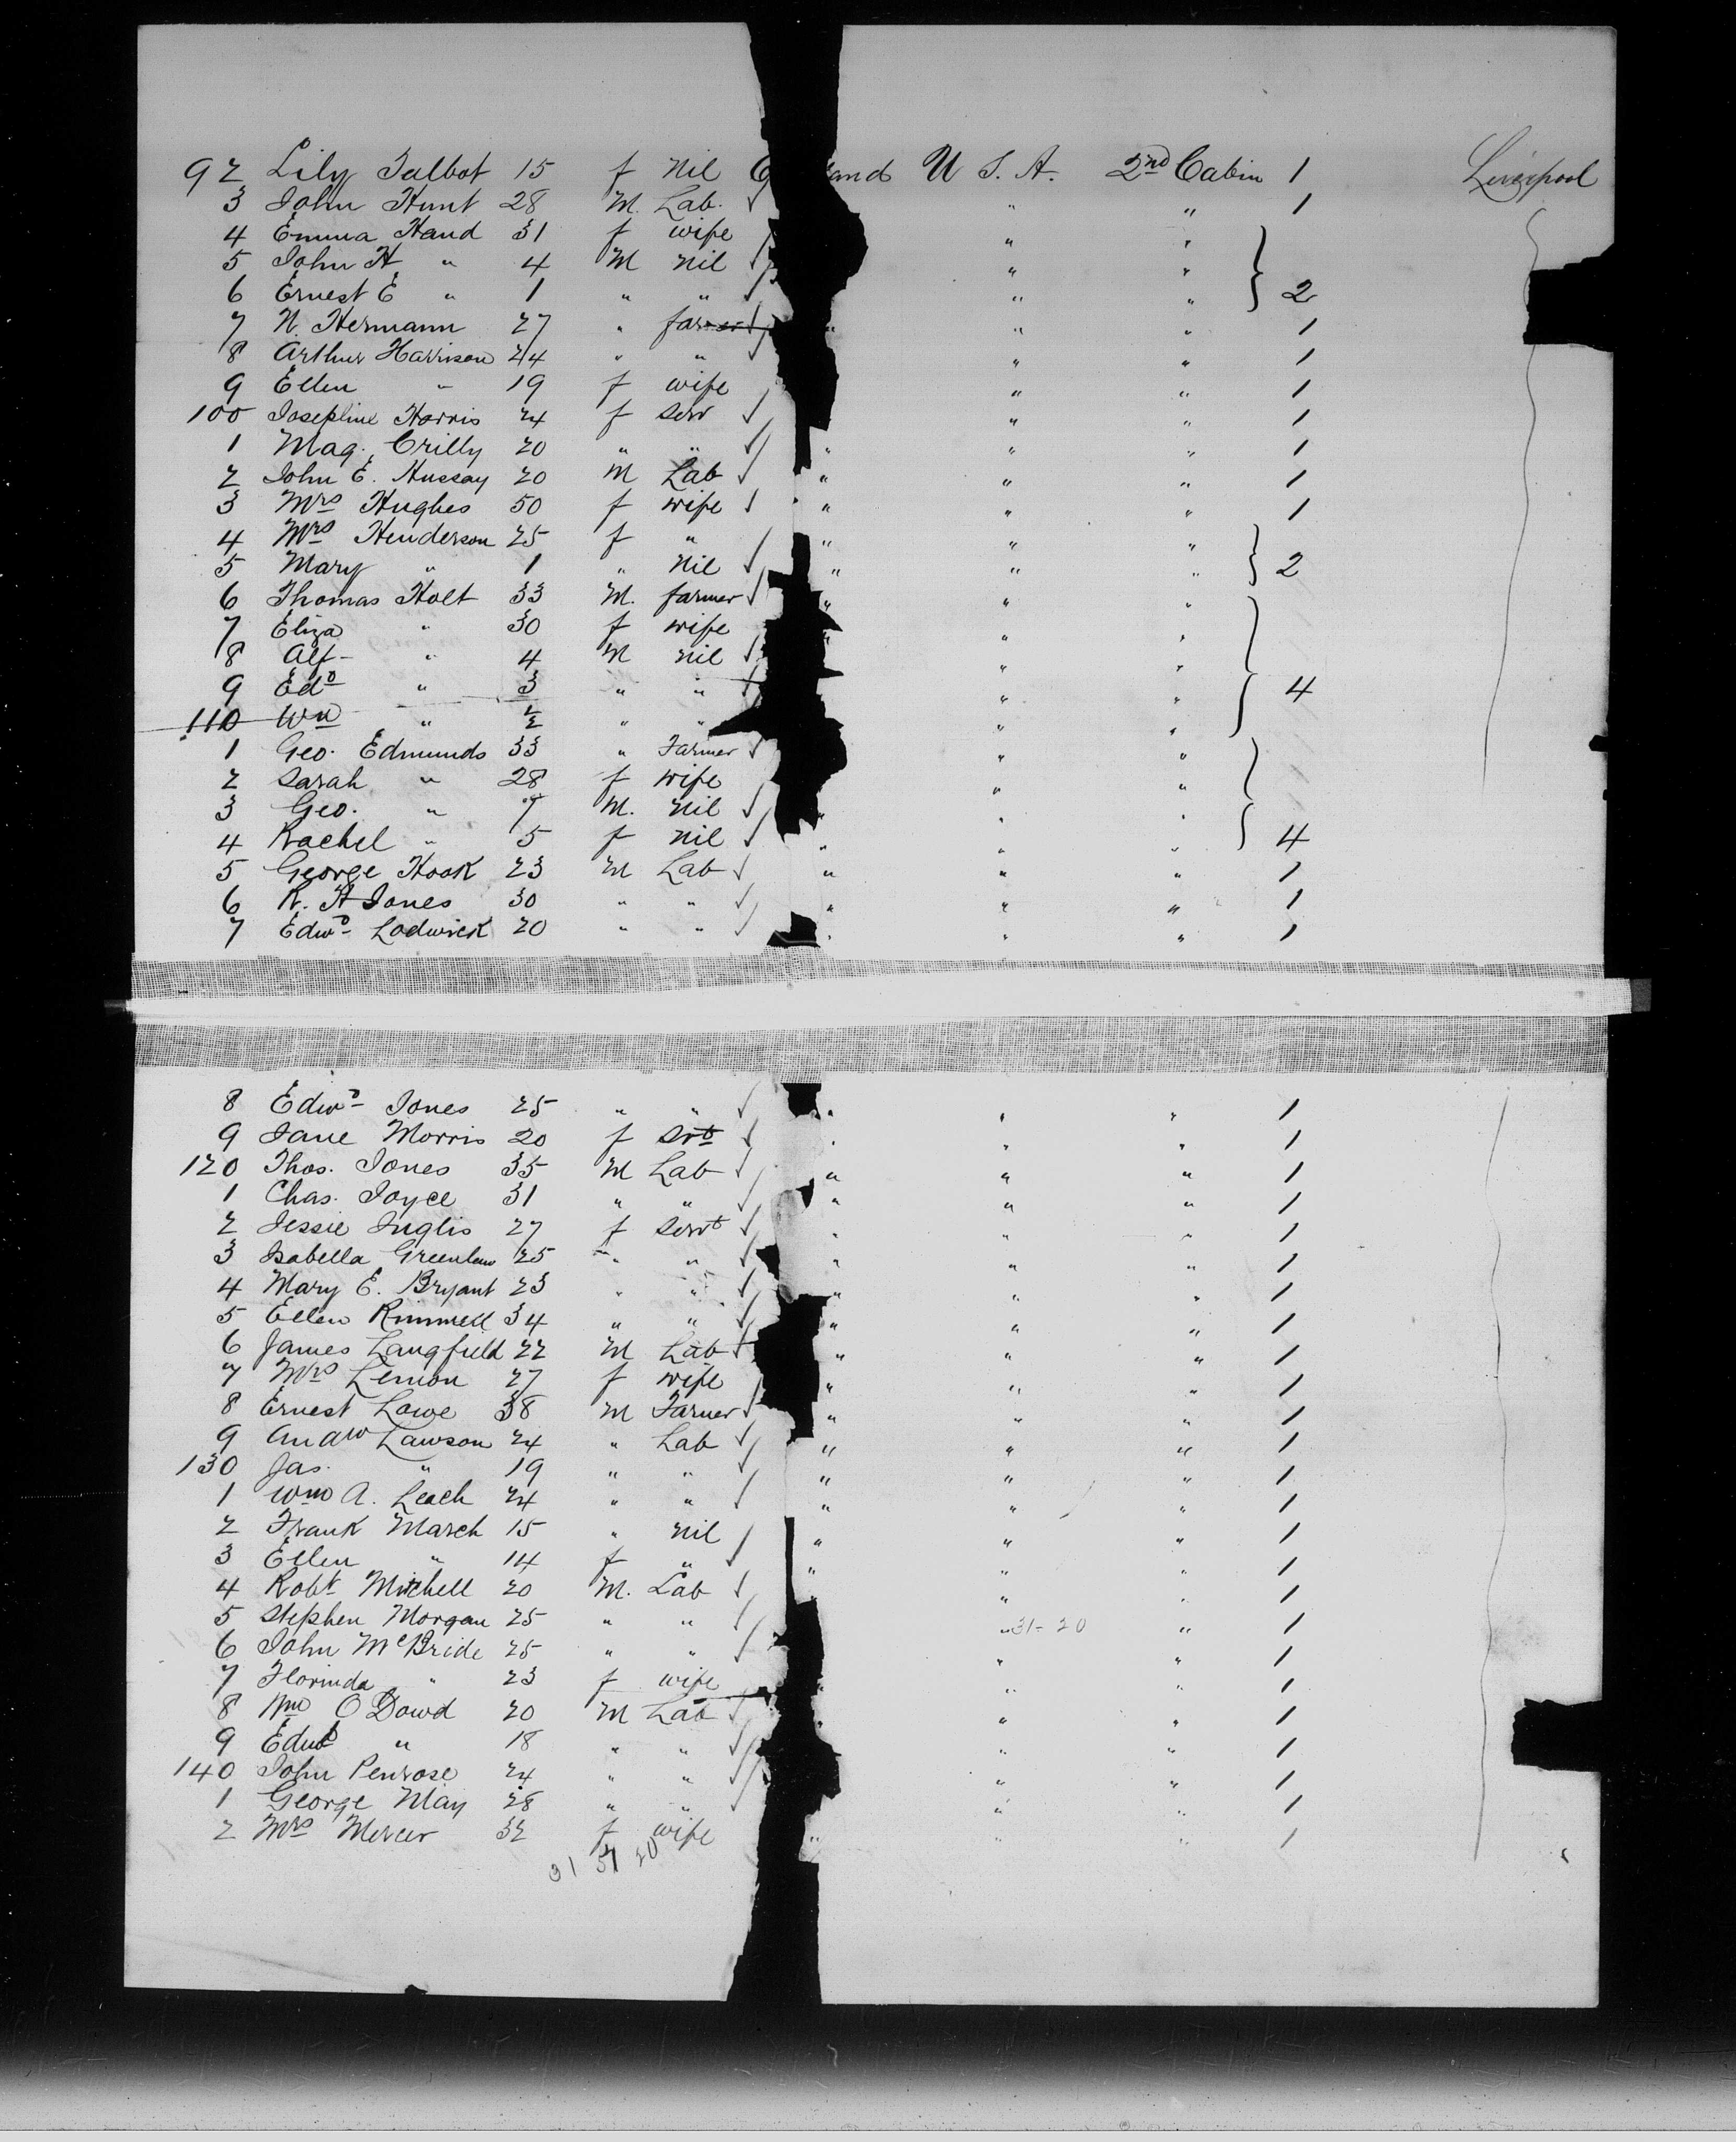 92 Lily Talbot 15 f Nil and U S. A. 2nd Cabin 1 Liverpool
3 John Hunt 28 M. Lab. " " 1
4 Emma Hand 31 f wife " "
5 John H " 4 M nil " "
6 Ernest E " 1 " " " " 2
7 N. Hermann 27 " farmer " " " 1
8 Arthur Harrison 24 " " " " 1
9 Ellen " 19 f wife " " 1
100 Josephine Harris 24 f Serv " " 1
1 Mag. Crilly 20 " " " " " 1
2 John E. Hussay 20 M Lab " " " 1
3 Mrs Hughes 50 f wife " " " 1
4 Mrs Henderson 25 f " " " "
5 Mary " 1 " Nil " " " 2
6 Thomas Holt 33 M. farmer " " "
7 Eliza " 30 f wife " " "
8 Alf " 4 M nil " "
9 Edd " 3 " " " " 4
110 Wm " 1/2 " " " "
1 Geo. Edmunds 33 " Farmer " "
2 Sarah " 28 f wife " "
3 Geo. " 7 M. Nil " " "
4 Rachel " 5 f Nil " " " 4
5 George Hook 23 M Lab " " " 1
6 R. H Jones 30 " " " " " 1
7 Edwd Lodwick 20 " " " " " 1
8 Edwd Jones 25 " " " " " 1
9 Jane Morris 20 f Srvt " " " 1
120 Thos. Jones 35 M Lab " " " 1
1 Chas. Joyce 31 " " " " " 1
2 Jessie Inglis 27 f Servt " " " 1
3 Isabella Greenlaw 25 " " " " " 1
4 Mary E. Bryant 23 " " " " " 1
5 Ellen Rimmell 34 " " " " " 1
6 James Langfield 22 M Lab " " " 1
7 Mrs Lemon 27 f wife " " " 1
8 Ernest Lowe 38 M Farmer " " " 1
9 Andw Lawson 24 " Lab " " " 1
130 Jas. " 19 " " " " " 1
1 Wm A. Leach 24 " " " " " 1
2 Frank March 15 " nil " " " 1
3 Ellen " 14 f " " " " 1
4 Robt Mitchell 20 M. Lab " " 1
5 Stephen Morgan 25 " " " 31-20 " 1
6 John McBride 25 " " " " 1
7 Florinda " 23 f wife " " 1
8 Wm O Dowd 20 M Lab " " " 1
9 Edwd " 18 " " " " 1
140 John Penrose 24 " " " " 1
1 George May 28 " " " " 1
2 Mrs Mercer 32 f wife " " " 1
31 31 20